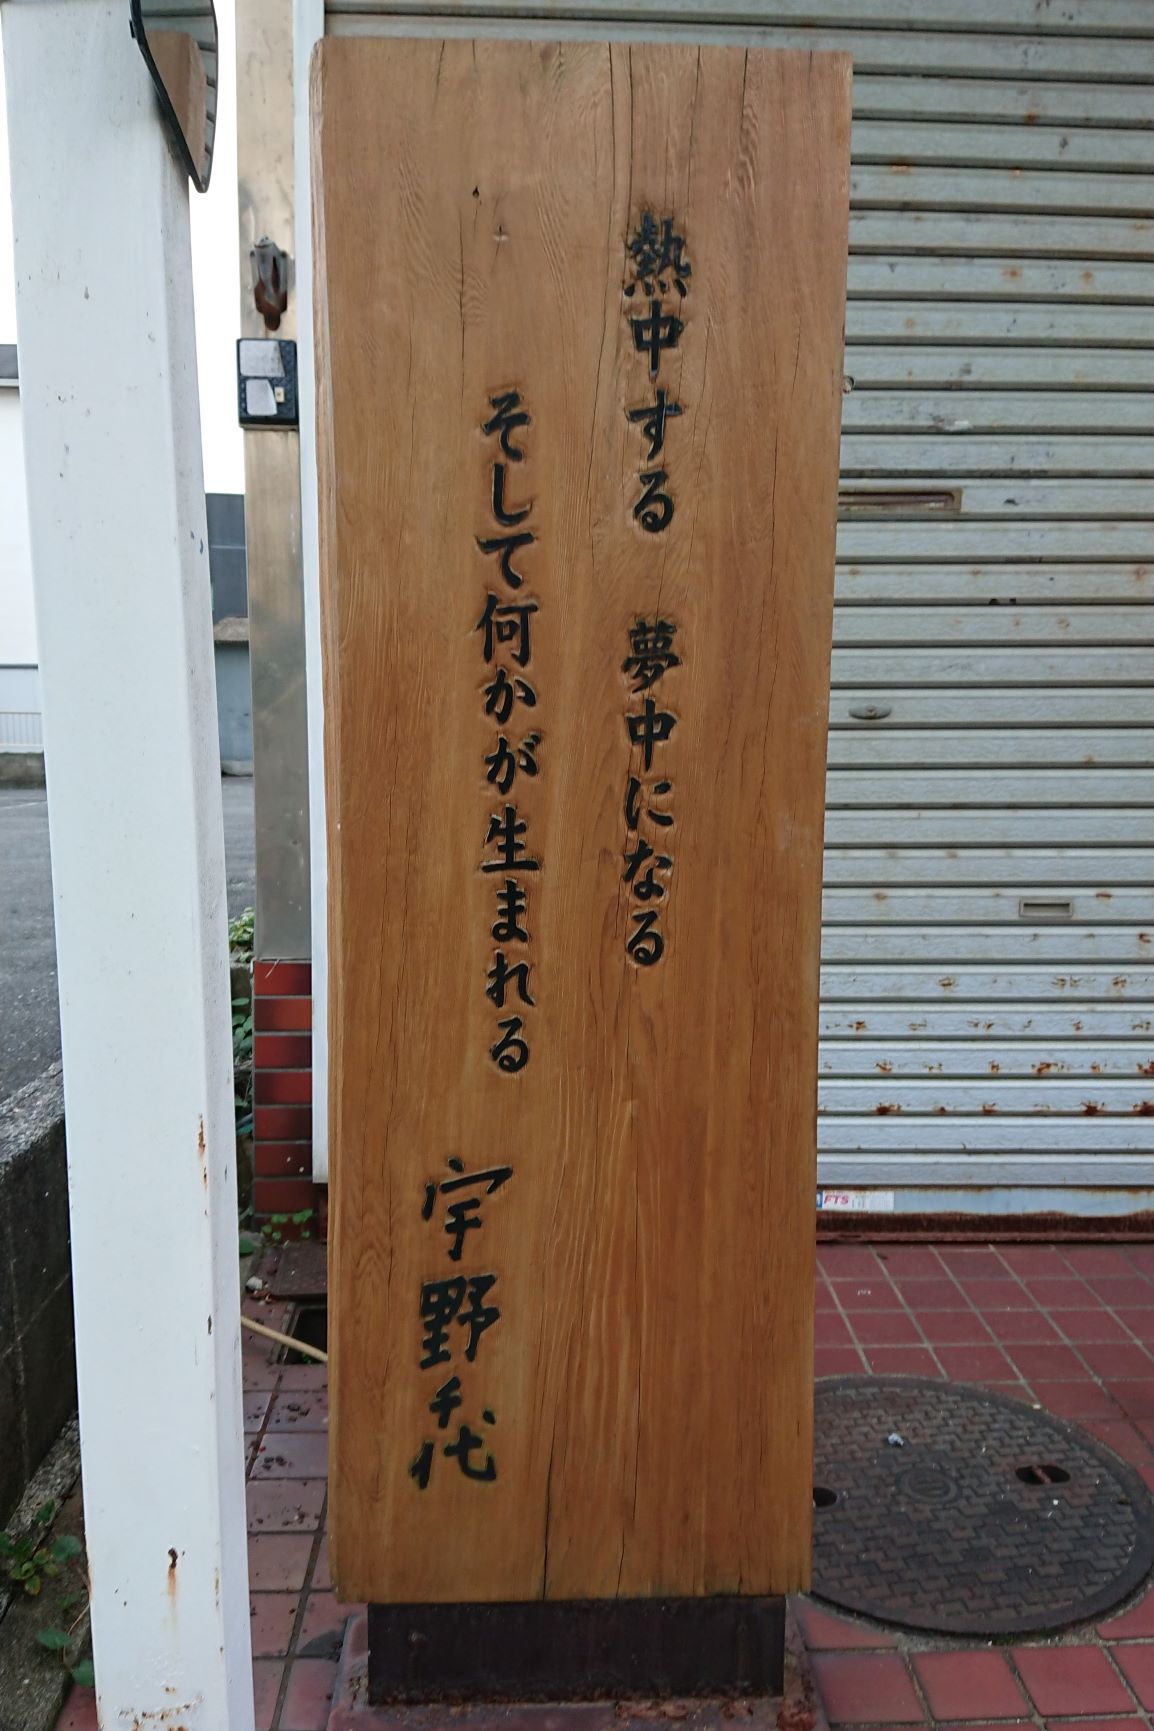 熱中する　夢中になる
そして何かが生まれる
宇野千代
FTS